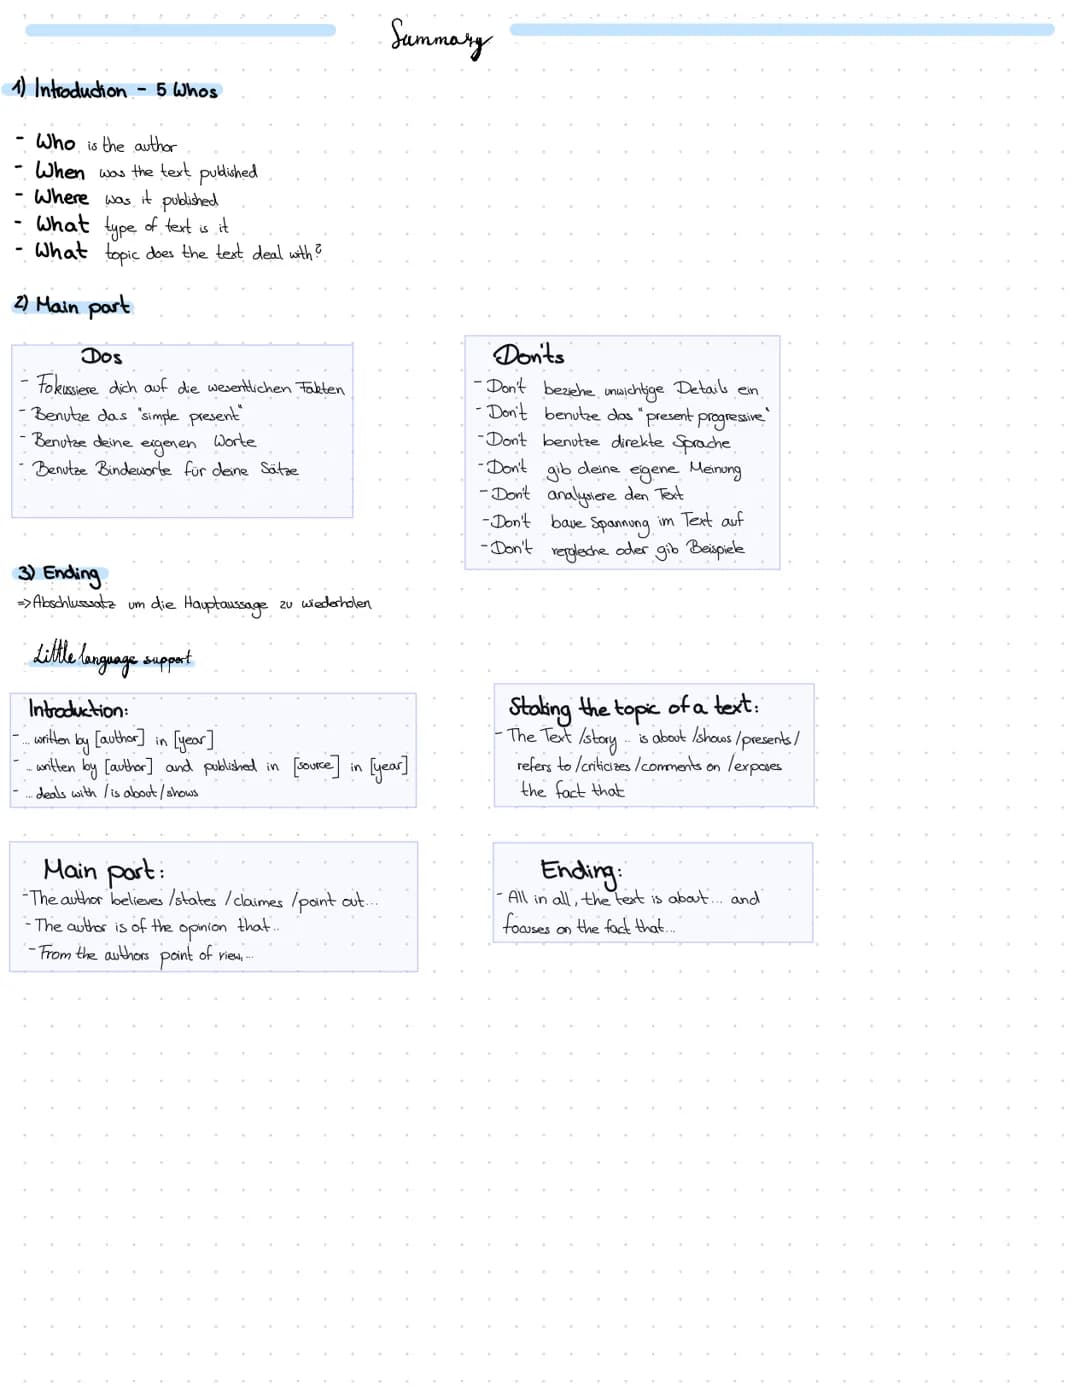 Summary
1) Introduction - 5 Whos
- Who is the author
- When was the text published
- Where was it published
- What type of text is it
- What topic does the text deal with?
2) Main part
Dos
- Fokussiere dich auf die wesentlichen Fakten
- Benutze das "simple present"
- Benutze deine eigenen Worte
- Benutze Bindeworte für deine Sätze
Don'ts
- Don't beziehe unwichtige Details ein
- Don't benutze das "present progressive"
- Don't benutze direkte Sprache
- Don't gib deine eigene Meinung
- Don't analysiere den Text
- Don't baue Spannung im Text auf
- Don't vergleiche oder gib Beispiele
3) Ending
=> Abschlusssatz um die Hauptaussage zu wiederholen
Little language support
Introduction:
- ... written by [author] in [year]
- ... written by [author] and published in [source] in [year]
- ... deals with / is about / shows
Stating the topic of a text:
- The Text /story .. is about /shows /presents /
refers to /criticizes /comments on /exposes
the fact that
Main part:
- The author believes /states /claimes /point out...
- The author is of the opinion that...
- From the authors point of view, ...
Ending:
- All in all, the text is about... and
focuses on the fact that...